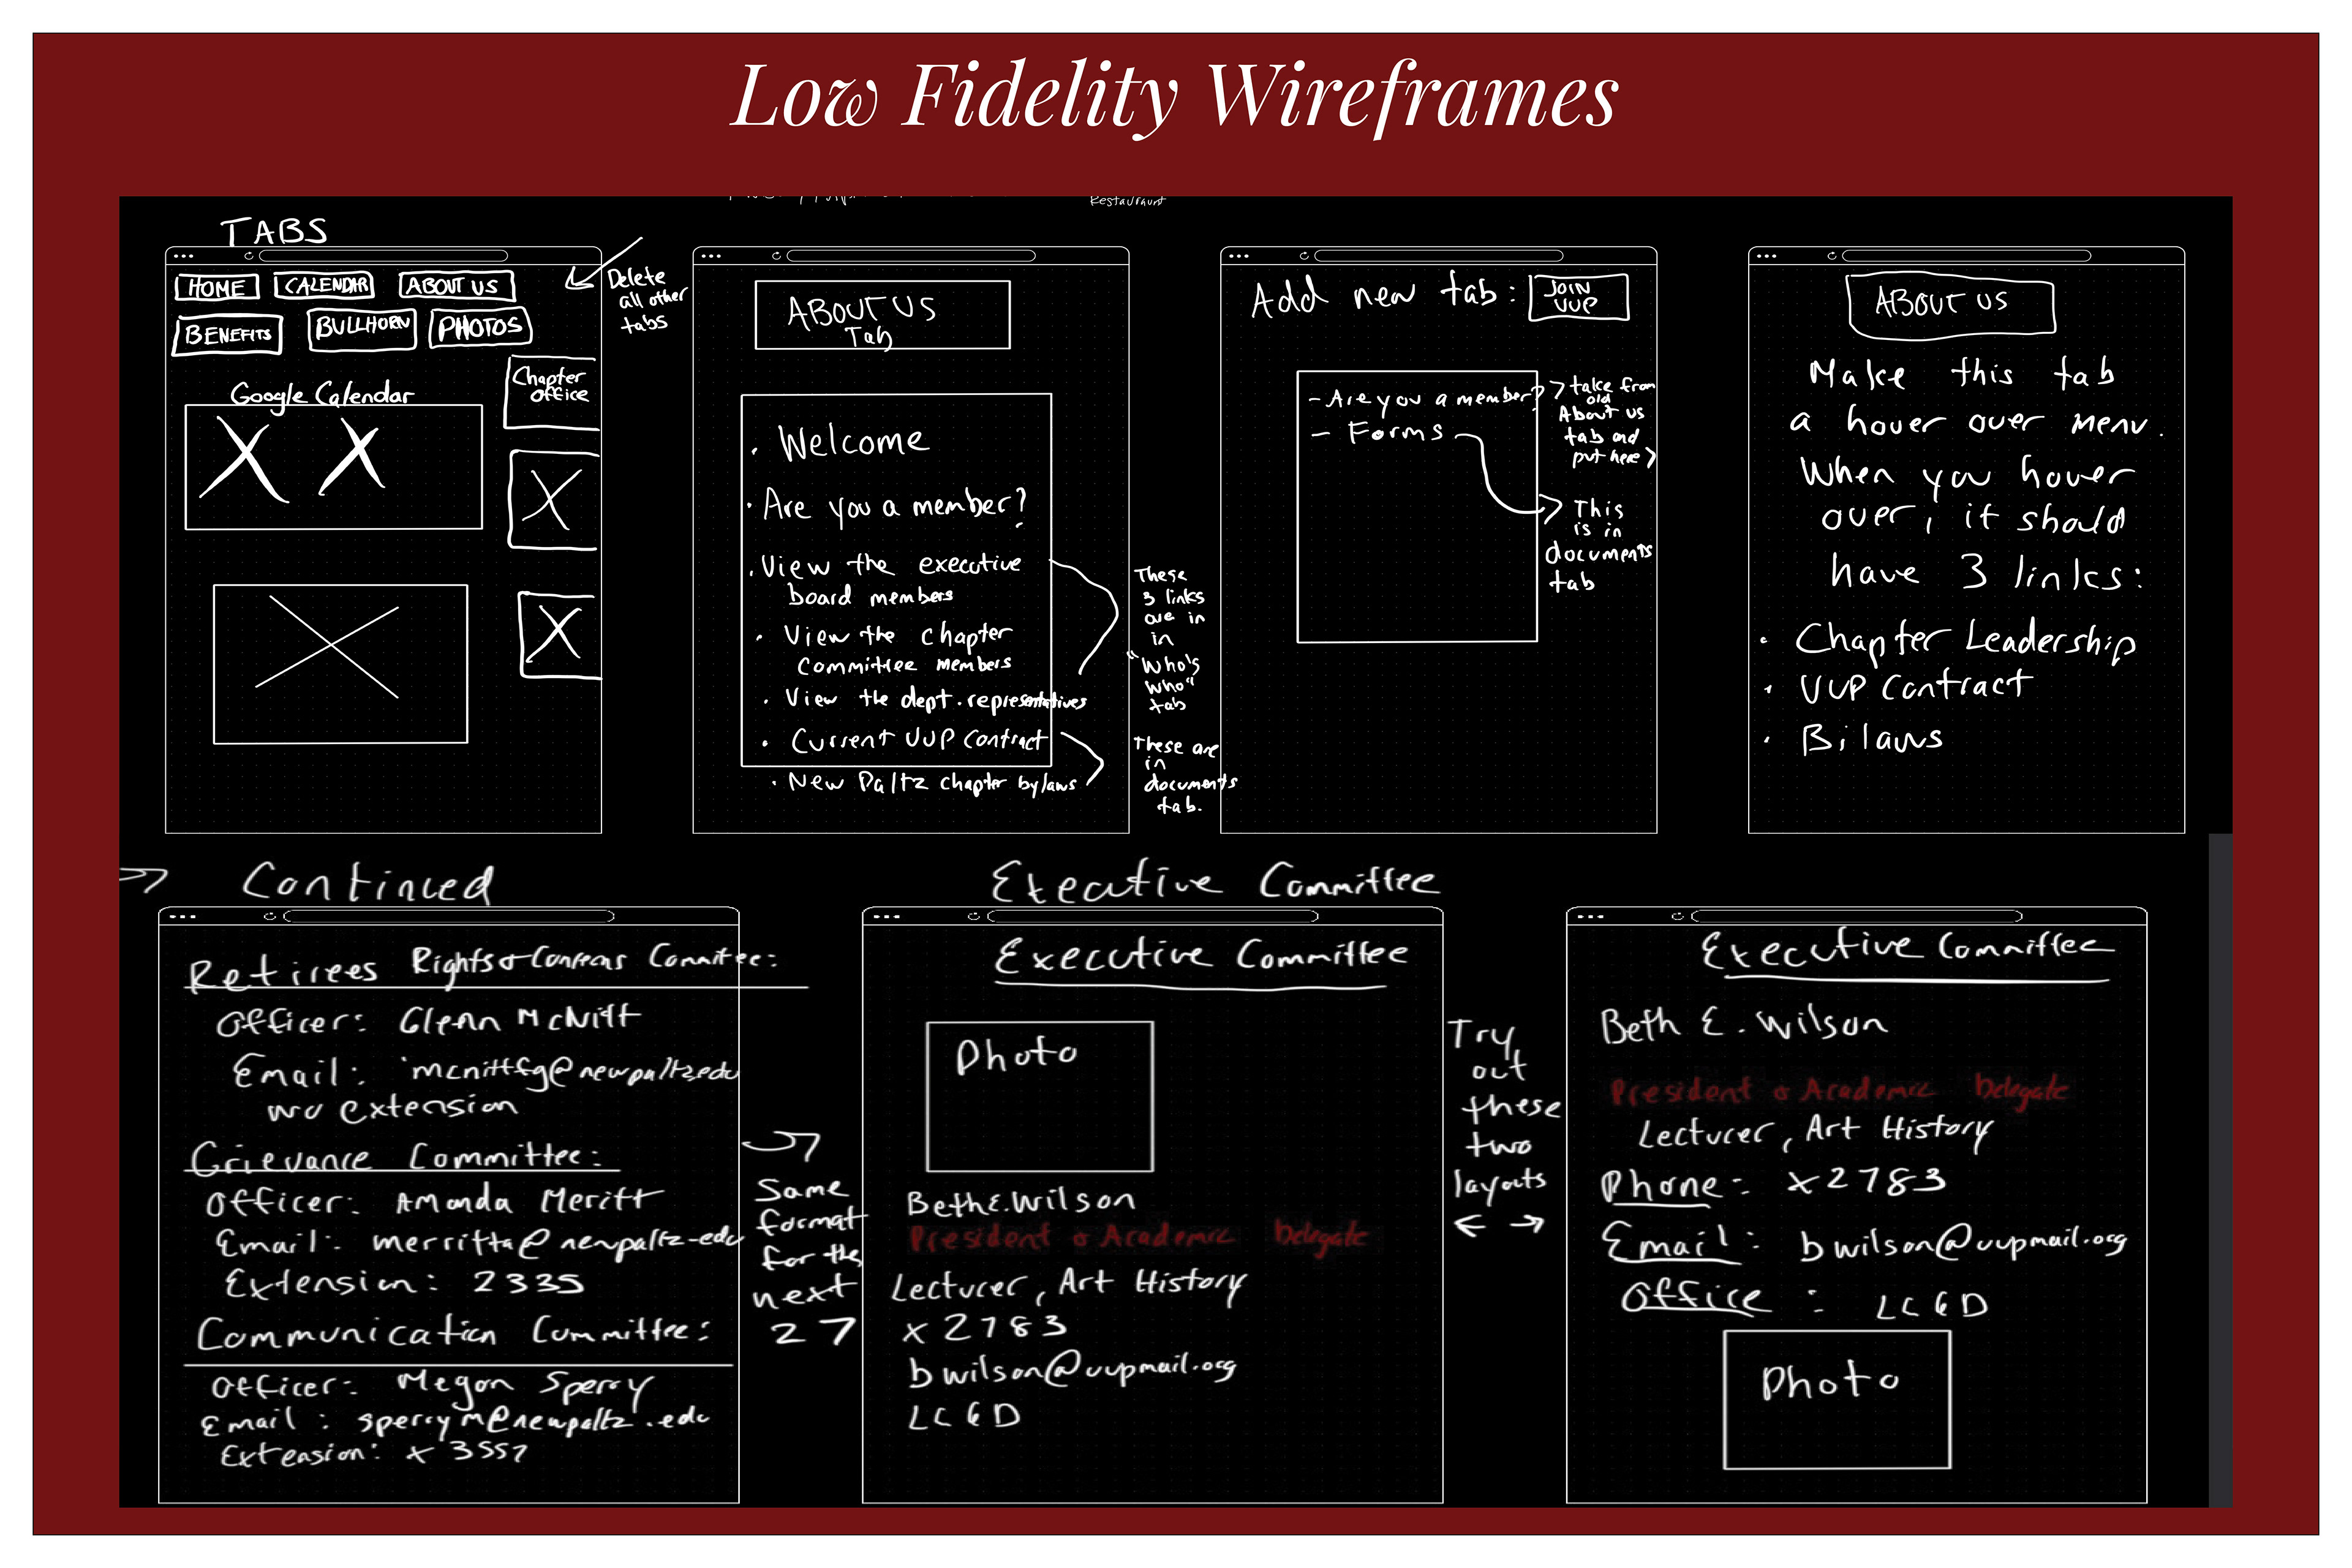 Low Fidelity Wireframes
Restauraunt
TABS
HOME CALENDAR ABOUT US
BENEFITS BULLHORN PHOTOS
Delete
all other
tabs
Google Calendar
Chapter
Office
ABOUT US
Tab
• Welcome
• Are you a member?
• View the executive
board members
• View the chapter
Committee members
• View the dept. representatives
• Current UUP Contract
• New Paltz chapter bylaws
These
3 links
are in
in
"Who's
Who"
tab
These are
in
documents
tab.
Add new tab: JOIN
UUP
- Are you a member?
- Forms
> take from
old
About us
tab and
put here >
This
is in
documents
tab
ABOUT US
Make this tab
a hover over menu.
When you hover
over, it should
have 3 links:
• Chapter Leadership
• UUP Contract
• Bilaws
Continued
Retirees Rights & Concerns Committee:
Officer: Glenn McNitt
Email: mcnittfg@newpaltz.edu
no extension
Grievance Committee:
Officer: Amanda Meritt
Email: merritta@newpaltz.edu
Extension: 2335
Communication Committee:
Officer: Megan Sperry
Email: sperrym@newpaltz.edu
Extension: x3557
Same
format
for the
next
27
Executive Committee
Executive Committee
Photo
Beth E. Wilson
President & Academic Delegate
Lecturer, Art History
x2783
bwilson@uupmail.org
LC6D
Try
out
these
two
layouts
Executive Committee
Beth E. Wilson
President & Academic Delegate
Lecturer, Art History
Phone: x2783
Email: bwilson@uupmail.org
Office: LC6D
Photo